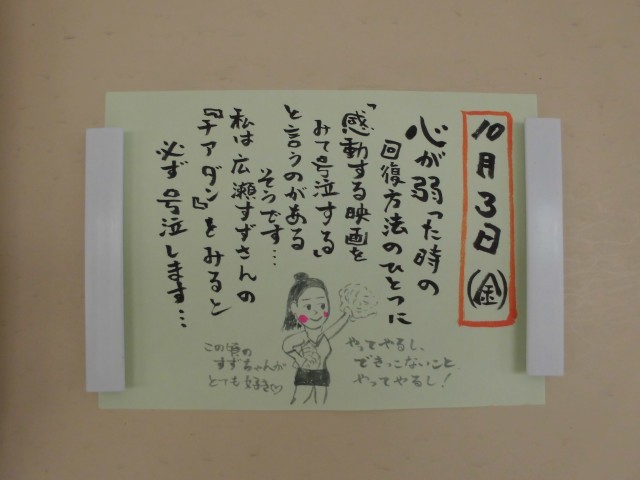 10月3日(金)
心が弱った時の
回復方法のひとつに
「感動する映画を
みて号泣する」
と言うのがある
そうです…
私は広瀬すずさんの
『チアダン』をみると
必ず号泣します…
やってやるし、
できっこないこと
やってやるし!
この頃の
すずちゃんが
とても好き♡